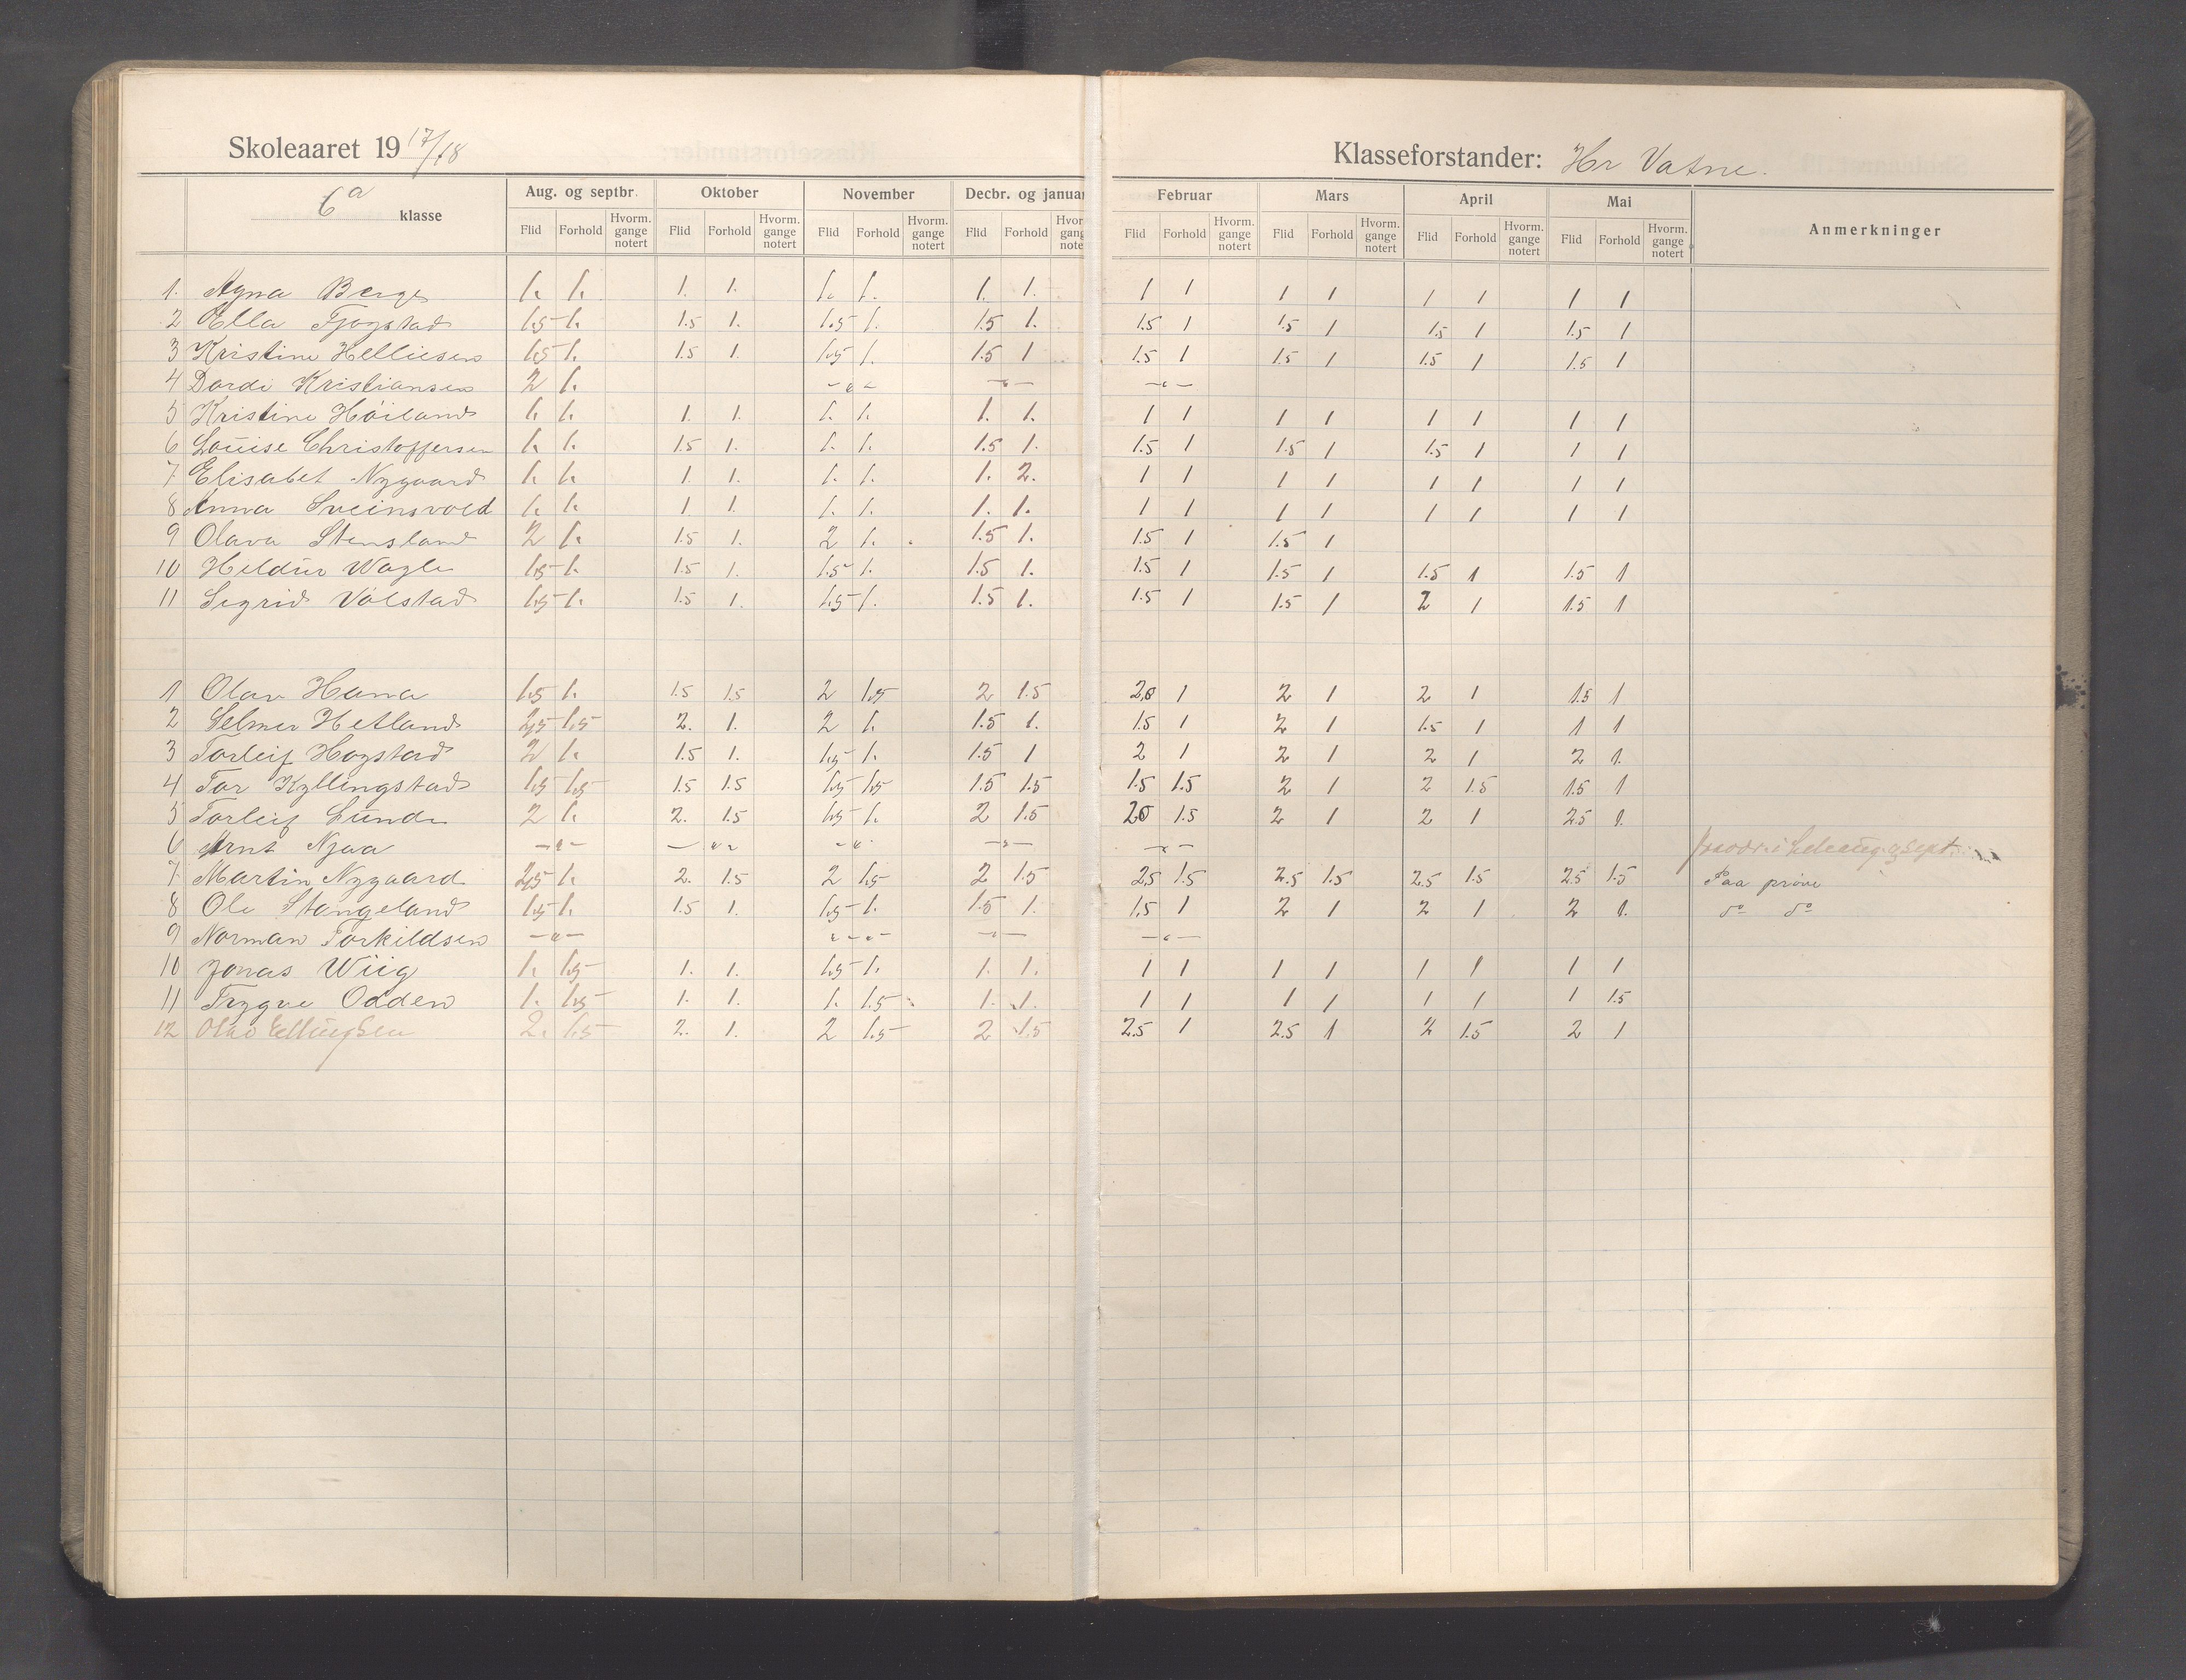 Skoleaaret 19 17/18
Klasseforstander: Hr Vatne.
6a klasse
Aug. og septbr. Oktober November Decbr. og januar Februar Mars April Mai Anmerkninger
Flid Forhold Hvorm. gange notert Flid Forhold Hvorm. gange notert Flid Forhold Hvorm. gange notert Flid Forhold Hvorm. gange notert Flid Forhold Hvorm. gange notert Flid Forhold Hvorm. gange notert Flid Forhold Hvorm. gange notert Flid Forhold Hvorm. gange notert
1. Agna Berge 1. 1. 1. 1. 1. 1. 1. 1. 1 1 1 1 1 1 1 1
2 Ella Fjogstad 1.5 1. 1.5 1. 1.5 1. 1.5 1. 1.5 1 1.5 1 1.5 1 1.5 1
3 Kristine Helliesen 1.5 1. 1.5 1. 1.5 1. 1.5 1 1.5 1 1.5 1 1.5 1 1.5 1
4 Dordi Kristiansen 2 1. -"- -"- -"-
5 Kristine Høiland 1. 1. 1. 1. 1. 1. 1. 1. 1 1 1 1 1 1 1 1
6 Louise Christoffersen 1. 1. 1.5 1. 1. 1. 1.5 1. 1.5 1 1.5 1 1.5 1 1 1
7 Elisabet Nygaard 1. 1. 1. 1. 1. 1. 1. 2. 1 1 1 1 1 1 1 1
8 Anna Sveinsvold 1. 1. 1 1. 1. 1. 1. 1. 1 1 1 1 1 1 1 1
9 Olava Stensland 2 1. 1.5 1. 2 1. 1.5 1. 1.5 1 1.5 1
10 Heldur Wagle 1.5 1. 1.5 1. 1.5 1. 1.5 1. 1.5 1 1.5 1 1.5 1 1.5 1
11 Sigrid Vølstad 1.5 1. 1.5 1. 1.5 1. 1.5 1. 1.5 1 1.5 1 2 1 1.5 1
1 Olav Hana 1.5 1. 1.5 1.5 2 1.5 2 1.5 2,0 1 2 1 2 1 1.5 1
2 Selmer Hetland 2,5 1.5 2. 1. 2 1. 1.5 1. 1.5 1 2 1 1.5 1 1 1
3 Torleif Hogstad 2 1. 1.5 1. 1.5 1. 1.5 1 2 1 2 1 2 1 2 1.
4 Tor Kyllingstad 1.5 1.5 1.5 1.5 1.5 1.5 1.5 1.5 1.5 1.5 2 1 2 1.5 1.5 1
5 Torleif Lunde 2 1. 2. 1.5 1.5 1. 2 1.5 20 1.5 2 1 2 1 2.5 1.
6 Arnt Njaa -"- -"- -"- -"- -"- sept.
7 Martin Nygaard 2,5 1. 2. 1.5 2 1.5 2 1.5 2,5 1.5 2.5 1.5 2.5 1.5 2.5 1.5 Paa prøve
8 Ole Stangeland 1.5 1. 1.5 1. 1.5 1. 1.5 1. 1.5 1 2 1 2 1 2 1. do do
9 Norman Torkildsen -"- -"- -"- -"-
10 Jonas Wiig 1. 1.5 1. 1. 1.5 1. 1. 1. 1 1 1 1 1 1 1 1
11 Trygve Odden 1. 1.5 1. 1. 1. 1.5 1. 1. 1 1 1 1 1 1 1 1.5
12 Ellingsen 2. 1.5 2. 1. 2 1.5 2 1.5 2.5 1 2.5 1 2 1.5 2 1